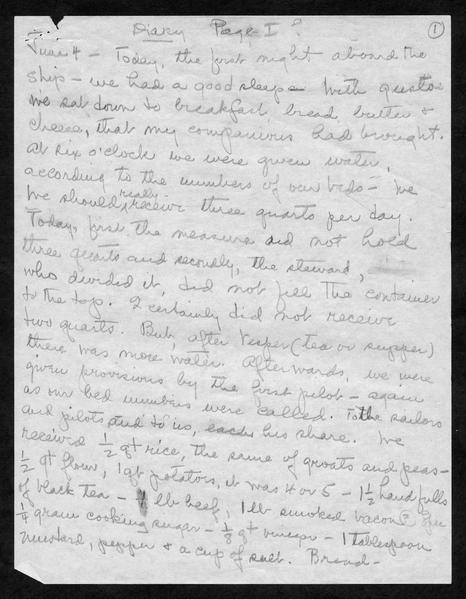 Diary Page I ?
1
June 4 - Today, the first night aboard the
ship - we had a good sleep - With gusto
we sat down to breakfast, bread, butter &
cheese, that my companions had brought.
At six o'clock we were given water,
according to the numbers of our beds - We
We should really receive three quarts per day.
Today, first the measure did not hold
three quarts and secondly, the steward,
who divided it, did not fill the container
to the top. I certainly did not receive
two quarts. But, after Vesper (tea or supper)
there was more water. Afterwards, we were
given provisions by the first pilot - again
as our bed numbers were called. To the sailors
and pilots and to us, each his share. We
received ½ qt rice, the same of groats and peas -
½ qt flour, 1 qt potatoes, it was 4 or 5 - 1½ handfulls
of black tea - lb beef, 1 lb smoked bacon
¼ gram cooking sugar - ⅛ qt vinegar - 1 tablespoon
mustard, pepper & a cup of salt. Bread -